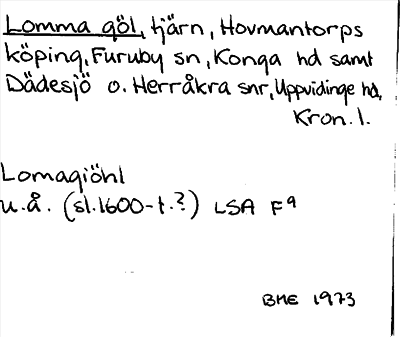 Lomma göl, tjärn, Hovmantorps
köping, Furuby sn, Konga hd samt
Dädesjö o. Herråkra snr, Uppvidinge hd,
Kron. l.
Lomagiöhl
u.å. (sl. 1600-t.?) LSA F9
BME 1973